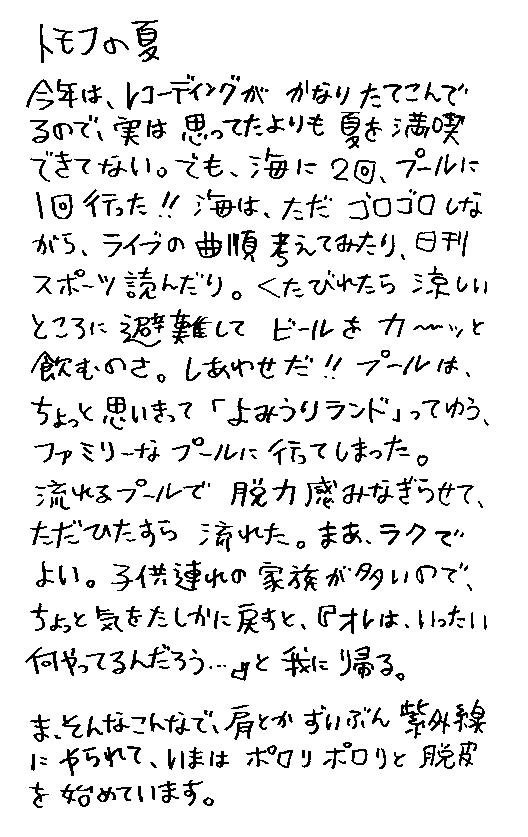 トモフの夏
今年は、レコーディングが かなり たてこんで
るので、実は 思ってたよりも 夏を 満喫
できてない。でも、海に 2回、プールに
1回 行った!! 海は、ただ ゴロゴロしな
がら、ライブの 曲順 考えてみたり、日刊
スポーツ 読んだり。くたびれたら 涼しい
ところに 避難して ビールを カ〜ッと
飲むのさ。しあわせだ!! プールは、
ちょっと 思いきって「よみうりランド」ってゆう、
ファミリーな プールに 行ってしまった。
流れるプールで 脱力感みなぎらせて、
ただひたすら 流れた。まあ、ラクで
よい。子供連れの 家族が 多いので、
ちょっと 気をたしかに 戻すと、『オレは、いったい
何やってるんだろう…』と 我に 帰る。
ま、そんなこんなで、肩とか ずいぶん 紫外線
に やられて、いまは ポロリ ポロリと 脱皮
を 始めています。